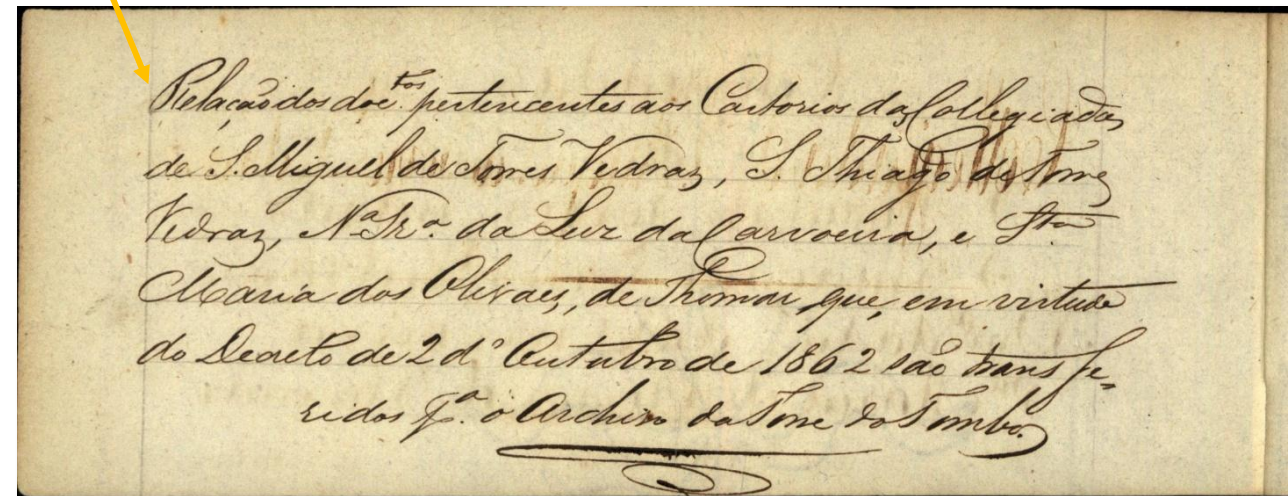 Relação dos doc.tos pertencentes aos Cartorios das Collegiadas
de S. Miguel de Torres Vedras, S. Thiago de Torres
Vedras, N.ª Sr.ª da Luz da Carvoeira, e St.ª
Maria dos Olivaes, de Thomar, que, em virtude
do Decreto de 2 d'Outubro de 1862 são transfe-
ridos p.ª o Archivo da Torre do Tombo.